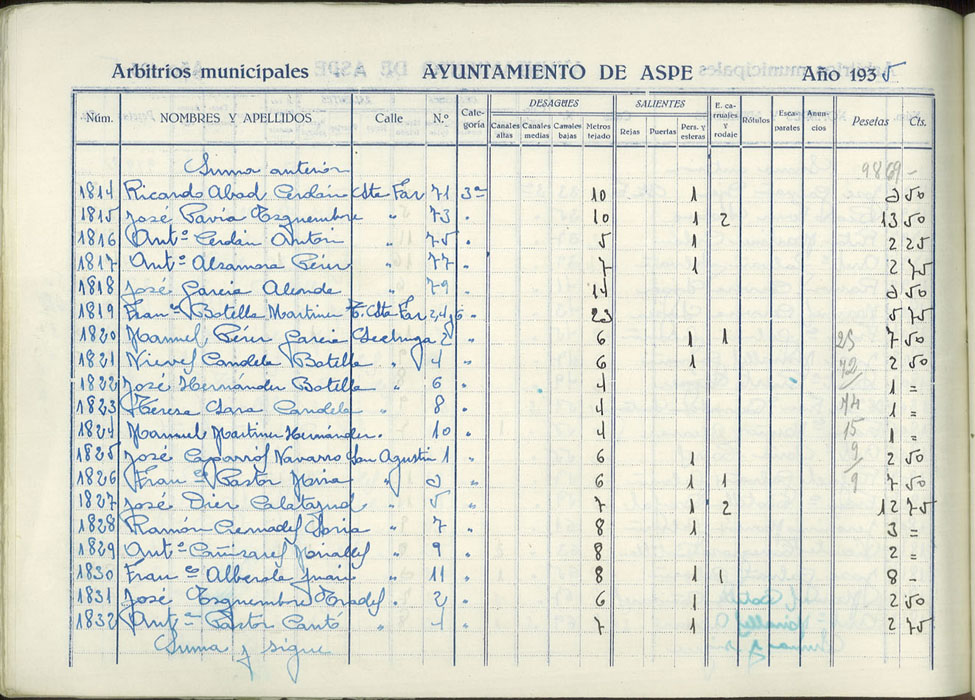 Arbitrios municipales AYUNTAMIENTO DE ASPE Año 1935
Núm. NOMBRES Y APELLIDOS Calle N.º Cate-goría DESAGUES Canales altas Canales medias Canales bajas Metros tejado SALIENTES Rejas Puertas Pers. y esteras E. ca-rruajes y rodaje Rótulos Esca-parates Anun-cios Pesetas Cts.
Suma anterior 9869 -
1814 Ricardo Abad Cerdán Cte Far 71 3ª 10 1 3 50
1815 José Pavía Esquembre " 73 " 10 1 2 13 50
1816 Antº Cerdán Antón " 75 " 5 1 2 25
1817 Antº Alzamora Pérez " 77 " 7 1 2 75
1818 José García Alcolea " 79 " 14 3 50
1819 Franco Botella Martínez T. Cte Far 2,4 y 6 " 23 5 75
1820 Manuel Pérez García 2 " 6 1 1 7 50
1821 Nieves Candela Botella " 4 " 6 1 2 50
1822 José Hernández Botella " 6 " 4 1 =
1823 Teresa Candela " 8 " 4 1 =
1824 Manuel Martínez Hernández " 10 " 4 1 =
1825 José Caparrós Navarro San Agustín 1 " 6 1 2 50
1826 Franco Pastor Mira " 3 " 6 1 1 7 50
1827 José Díez Calatayud " 5 " 7 1 2 12 75
1828 Ramón Cremades Soria " 7 " 8 1 3 =
1829 Antº Cañizares Miralles " 9 " 8 2 =
1830 Franco Alberola Juan " 11 " 8 1 1 8 -
1831 José Esquembre Prades " 2 " 6 1 2 50
1832 Antº Pastor Cantó " 4 " 7 1 2 75
Suma y sigue
25
72
74
15
9
9